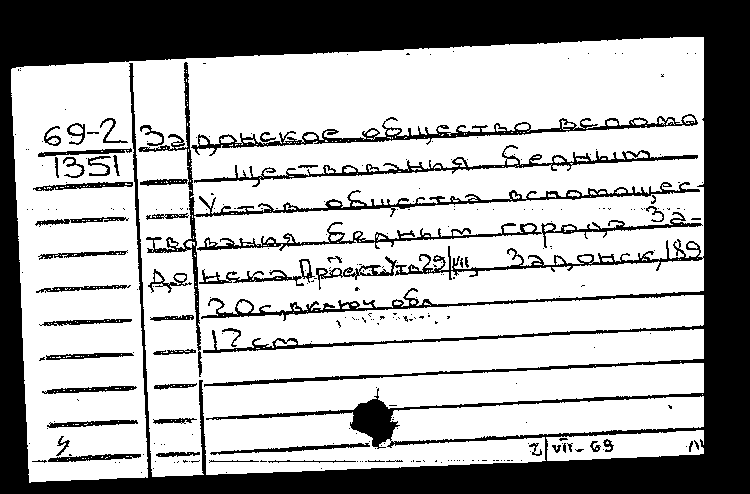 69-2
1351
Задонское общество вспомо
ществования бедным
Устав общества вспомощес-
твования бедным города За-
донска [Проект. Утв 29/VII, Задонск, 189
20 с, включ обл
17 cm
2/VII-69